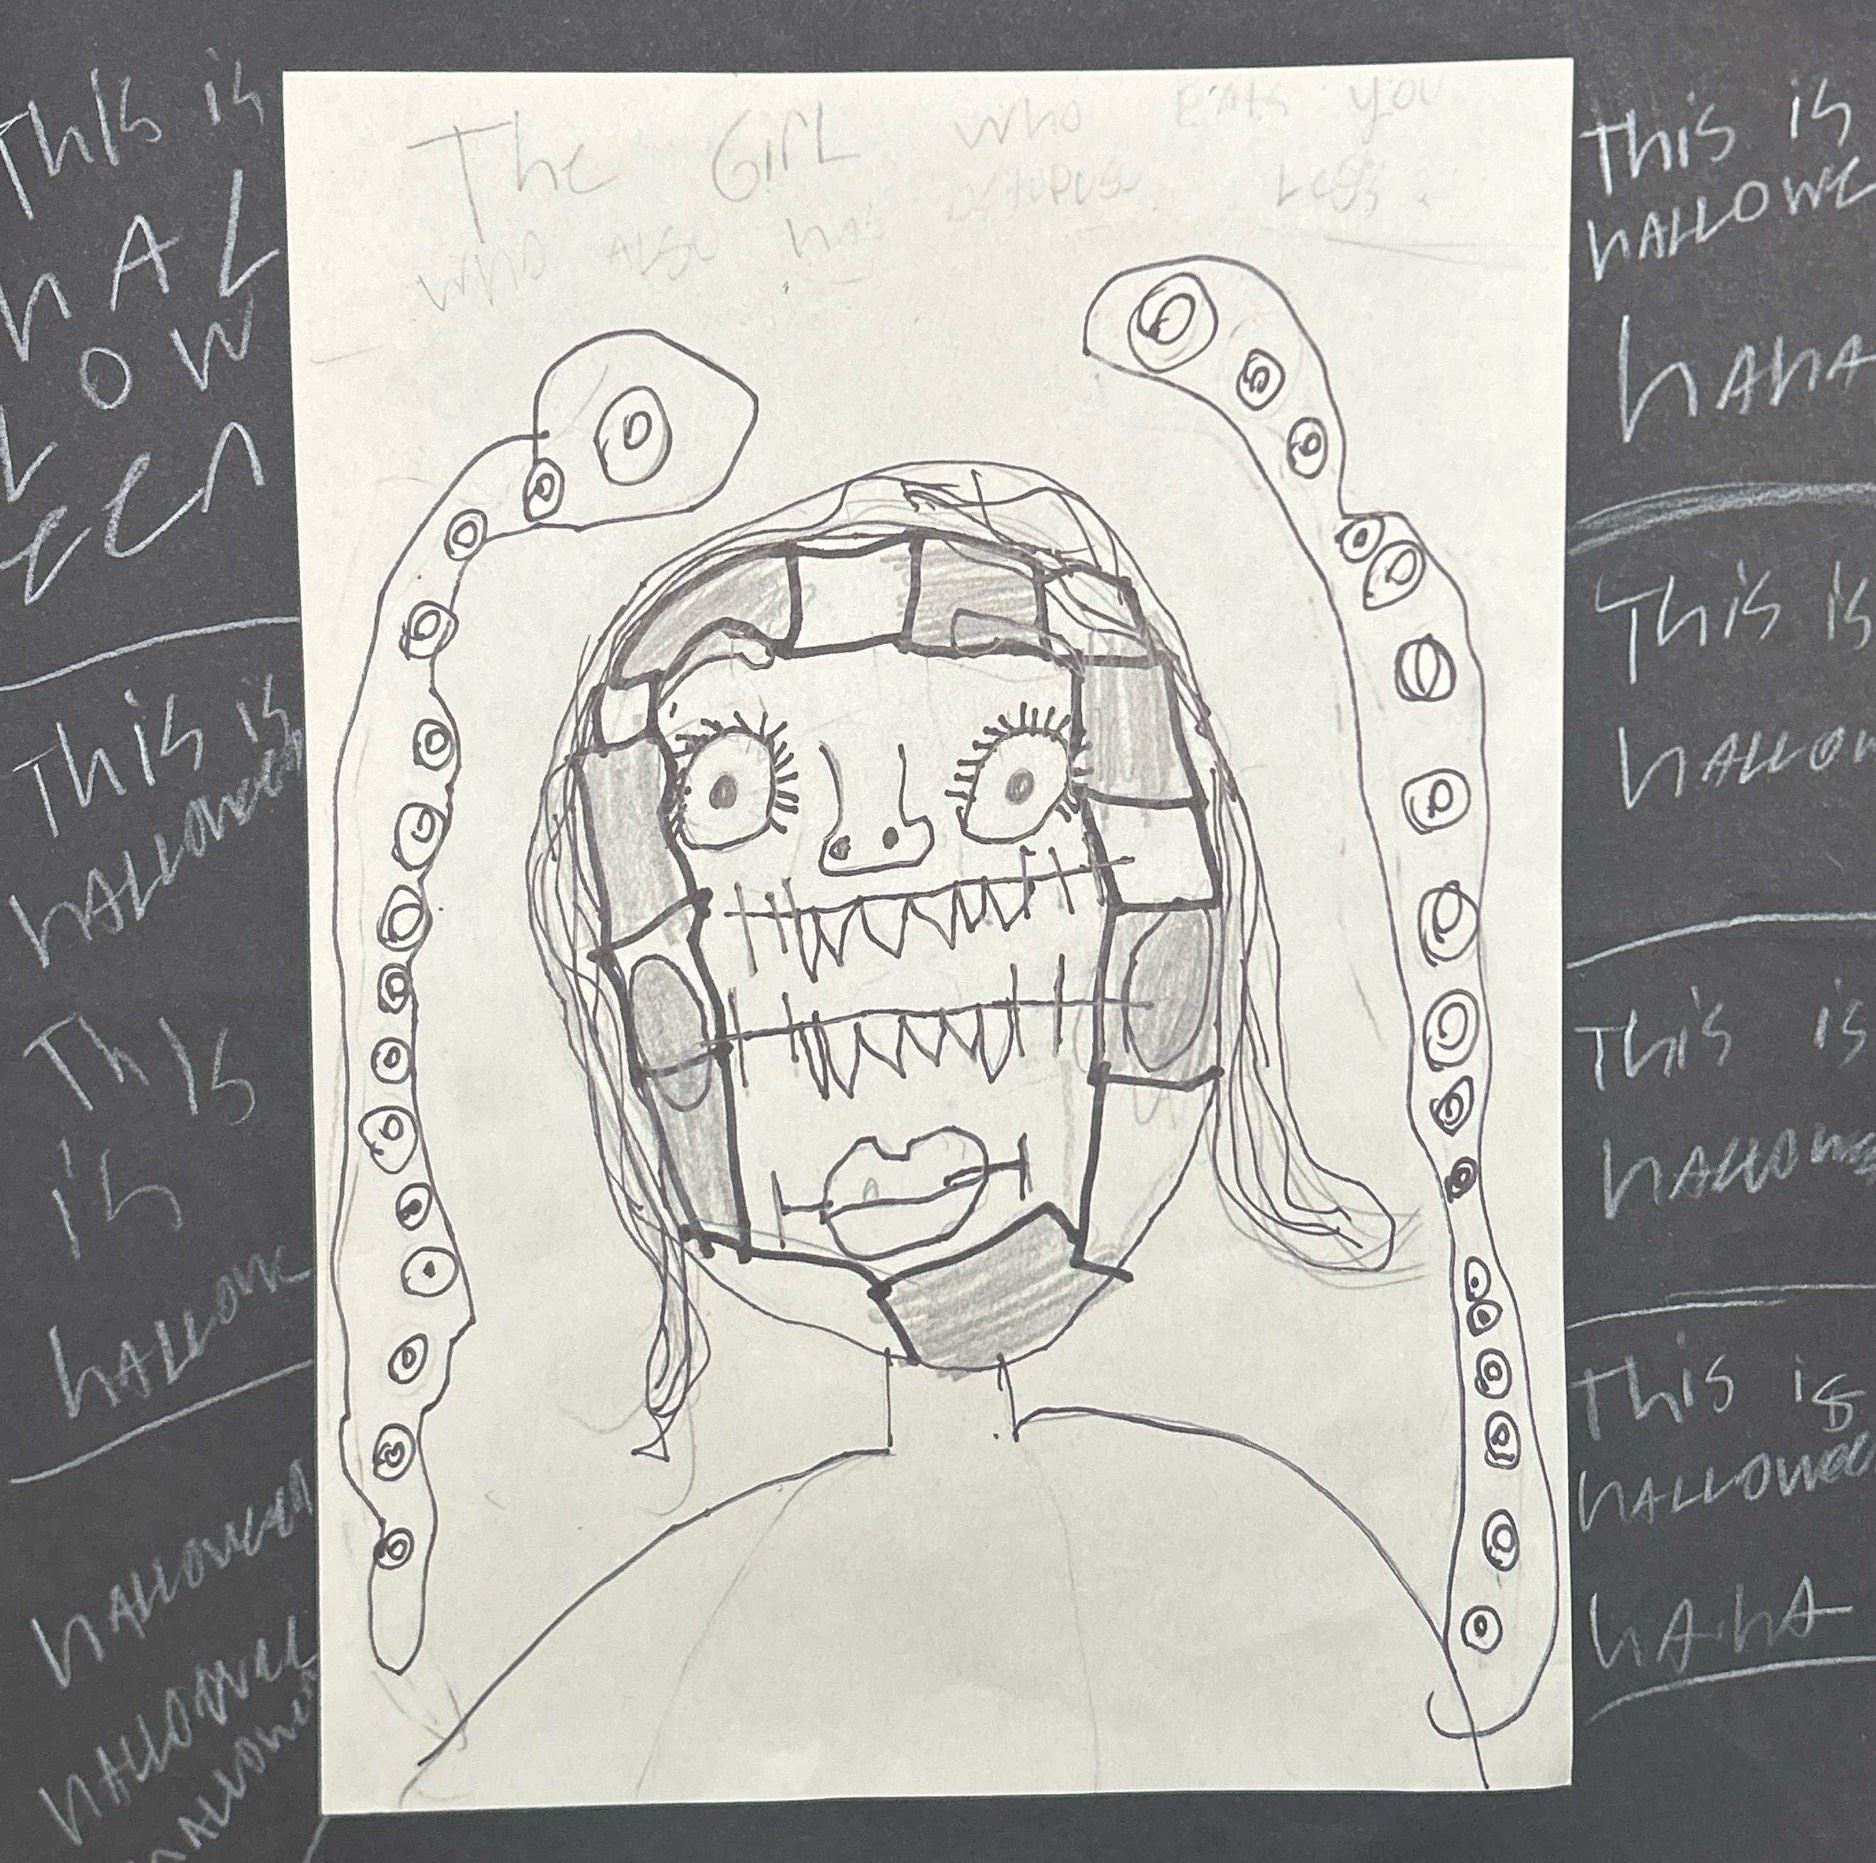 The GirL who EAts you
who ALSO has octopuse Legs.
This is
hAL
LOW
EEn
This is
hALLOween
This
is
hALLOwe
hALLOween
hALLOwee
hALLOwe
This is
hALLOWE
hAhA
This is
hALLOw
This is
hALLOwe
This is
hALLOwee
hAhA